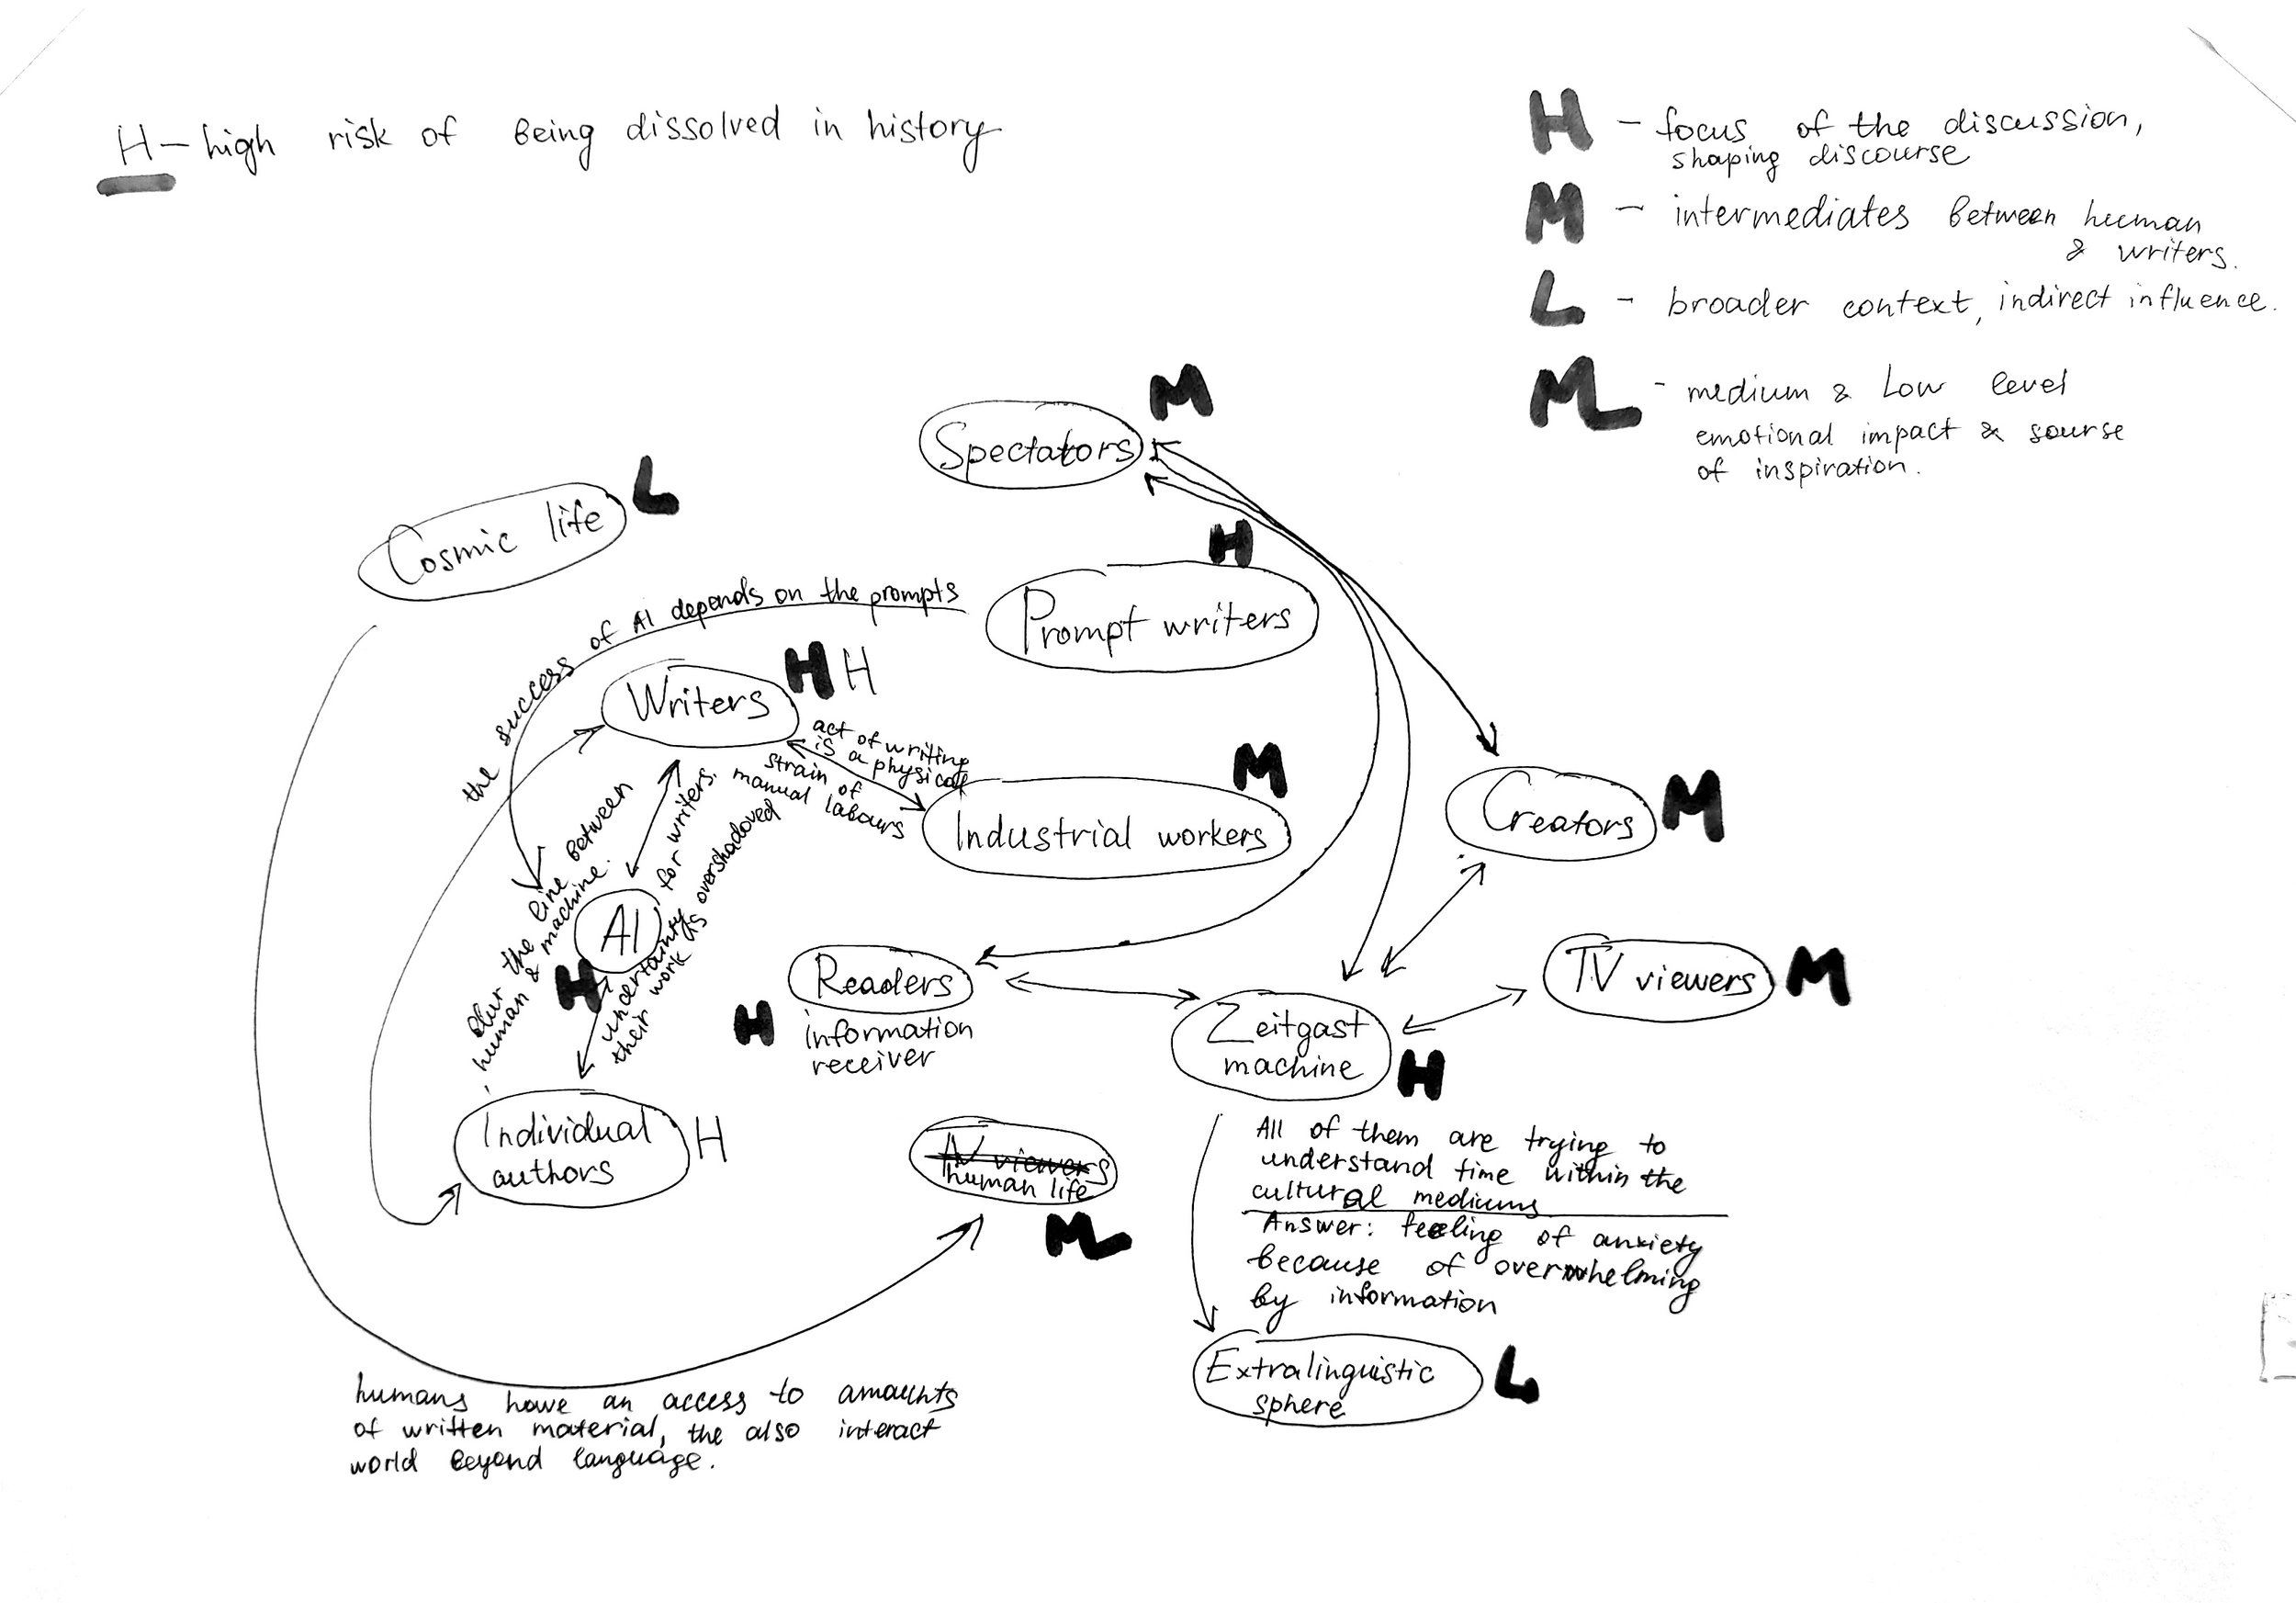 H – high risk of being dissolved in history
H – focus of the discussion,
shaping discourse
M – intermediates between human
& writers.
L – broader context, indirect influence.
ML - medium & Low level
emotional impact & sourse
of inspiration.
Spectators
M
Cosmic life
L
H
Prompt writers
the success of AI depends on the prompts
Writers
H H
act of writing
is a physical
strain of
manual labours
M
Industrial workers
Creators
M
blur the line between
human & machine.
AI
H
uncertainty for writers.
their work is overshadowed
Readers
H
information
receiver
Zeitgast
machine
H
TV viewers
M
Individual
authors
H
TV viewers
human life
ML
All of them are trying to
understand time within the
cultural mediums
Answer: feeling of anxiety
because of overwhelming
by information
Extralinguistic
sphere
L
humans have an access to amaunts
of written material, the also interact
world beyond language.